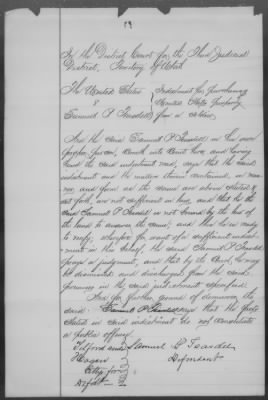 In the District Court for the Third Judicial
District, Territory of Utah
The United States } Indictment for purchasing
& United States property
Samuel P. Teasdel } from a soldier
And the said Samuel P Teasdel in his own
proper person, cometh into Court here, and having
heard the said indictment read, says that the said
indictment and the matters therein contained, in man-
ner and form as the same are above stated &
set forth, are not sufficient in law, and that he the
said Samuel P Teasdel is not bound by the law of
the land to answer the same; and this he is ready
to verify; wherefore for want of a sufficient indict-
ment in this behalf the said Samuel P. Teasdel
prays a judgment, and that by the Court, he may
be dismissed and discharged from the said
premises in the said indictment specified.
And for further ground of demurrer the
said Samuel P Teasdel says that the facts
stated in said indictment do not constitute
a public offense
Tilford and } Samuel P Teasdel
Hagan Defendant
Attys for
Defdt